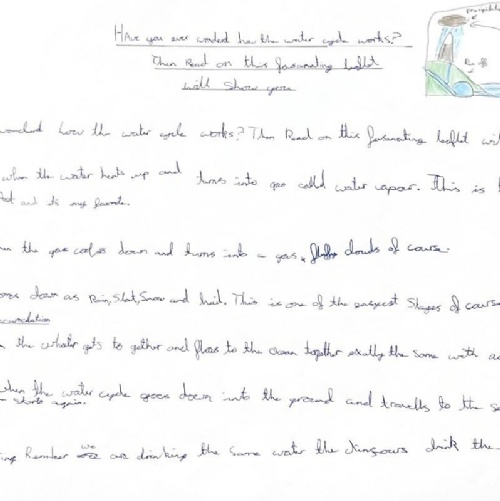 Have you ever wonded how the water cycle works?
Then Read on this fasunating leaflet
will show you
precipitation
Run off
wonded how the water cycle works? Then Read on this fasunating leaflet wil
when the water heats up and turns into gas called water vapour. This is
and its my favourite.
the gas cooles down and turns into a gas, clouds of course.
down as Rain, Slat, Snow and hail. This is one of the easyest Stages of course
the whater gets to gether and flows to the ocean together exatly the same with
when the water cycle goes down into the ground and travells to the
starts again.
we
Rember are drinking the same water the dinsours drink the